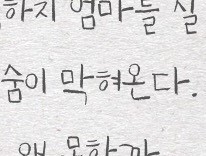 하지 엄마를 실
숨이 막혀온다.
왜 못할까